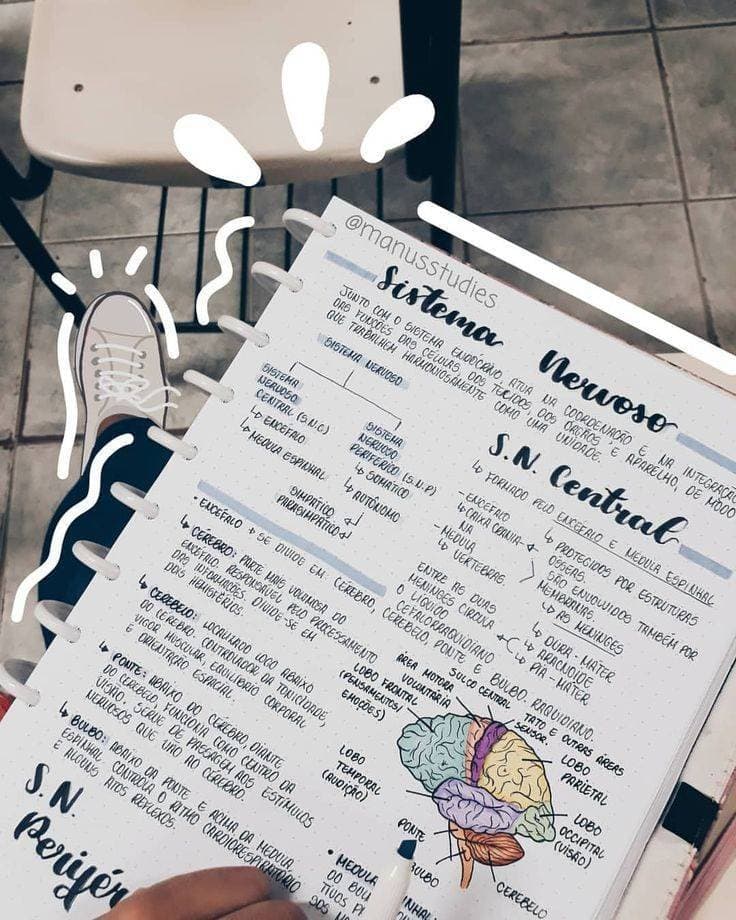 @manusstudies
Sistema Nervoso
JUNTO COM O SISTEMA ENDÓCRINO ATUA NA COORDENAÇÃO E NA INTEGRAÇÃO
DAS FUNÇÕES DAS CÉLULAS, DOS TECIDOS, DOS ÓRGÃOS E APARELHO, DE MODO
QUE TRABALHEM HARMONIOSAMENTE COMO UMA UNIDADE.
SISTEMA NERVOSO
SISTEMA
NERVOSO
CENTRAL (S.N.C)
↳ ENCÉFALO
↳ MEDULA ESPINHAL
SISTEMA
NERVOSO
PERIFÉRICO (S.N.P)
↳ SOMÁTICO
↳ AUTÔNOMO
SIMPÁTICO
PARASIMPÁTICO
S.N. Central
↳ FORMADO PELO ENCÉFALO E MEDULA ESPINHAL
- ENCÉFALO
↳ CAIXA CRANIANA
- MEDULA
↳ VERTEBRAS
↳ PROTEGIDOS POR ESTRUTURAS
ÓSSEAS.
SÃO ENVOLVIDOS TAMBÉM POR
MEMBRANAS.
↳ AS MENINGES
↳ DURA-MATER
↳ ARACNOIDE
↳ PIA-MATER
ENTRE AS DUAS
MENINGES CIRCULA
O LÍQUIDO
CEFALORRAQUIDIANO
• ENCÉFALO → SE DIVIDE EM: CÉREBRO, CEREBELO, PONTE E BULBO. RAQUIDIANO.
↳ CÉREBRO: PARTE MAIS VOLUMOSA DO
ENCÉFALO. RESPONSÁVEL PELO PROCESSAMENTO
DAS INFORMAÇÕES. DIVIDE-SE EM
DOIS HEMISFÉRIOS.
↳ CEREBELO: LOCALIZADO LOGO ABAIXO
DO CÉREBRO. CONTROLADOR DA TONICIDADE,
VIGOR MUSCULAR, EQUILIBRIO CORPORAL
E ORIENTAÇÃO ESPACIAL.
↳ PONTE: ABAIXO DO CÉREBRO, DIANTE
DO CEREBELO, FUNCIONA COMO CENTRO DA
VISÃO, SERVE DE PASSAGEM AOS ESTÍMULOS
NERVOSOS QUE VÃO AO CÉREBRO.
↳ BULBO: ABAIXO DA PONTE E ACIMA DA MEDULA
ESPINHAL CONTROLA O RITMO CARDIORRESPIRATÓRIO
E ALGUNS ATOS REFLEXOS.
LOBO FRONTAL
(PENSAMENTOS/
EMOÇÕES)
ÁREA MOTORA
VOLUNTÁRIA
SULCO CENTRAL
TATO E OUTRAS ÁREAS
SENSOR.
LOBO
PARIETAL
LOBO
TEMPORAL
(AUDIÇÃO)
LOBO
OCCIPITAL
(VISÃO)
PONTE
BULBO
CEREBELO
S.N.
Perifér
• MEDULA
DO BUL
TIVOS